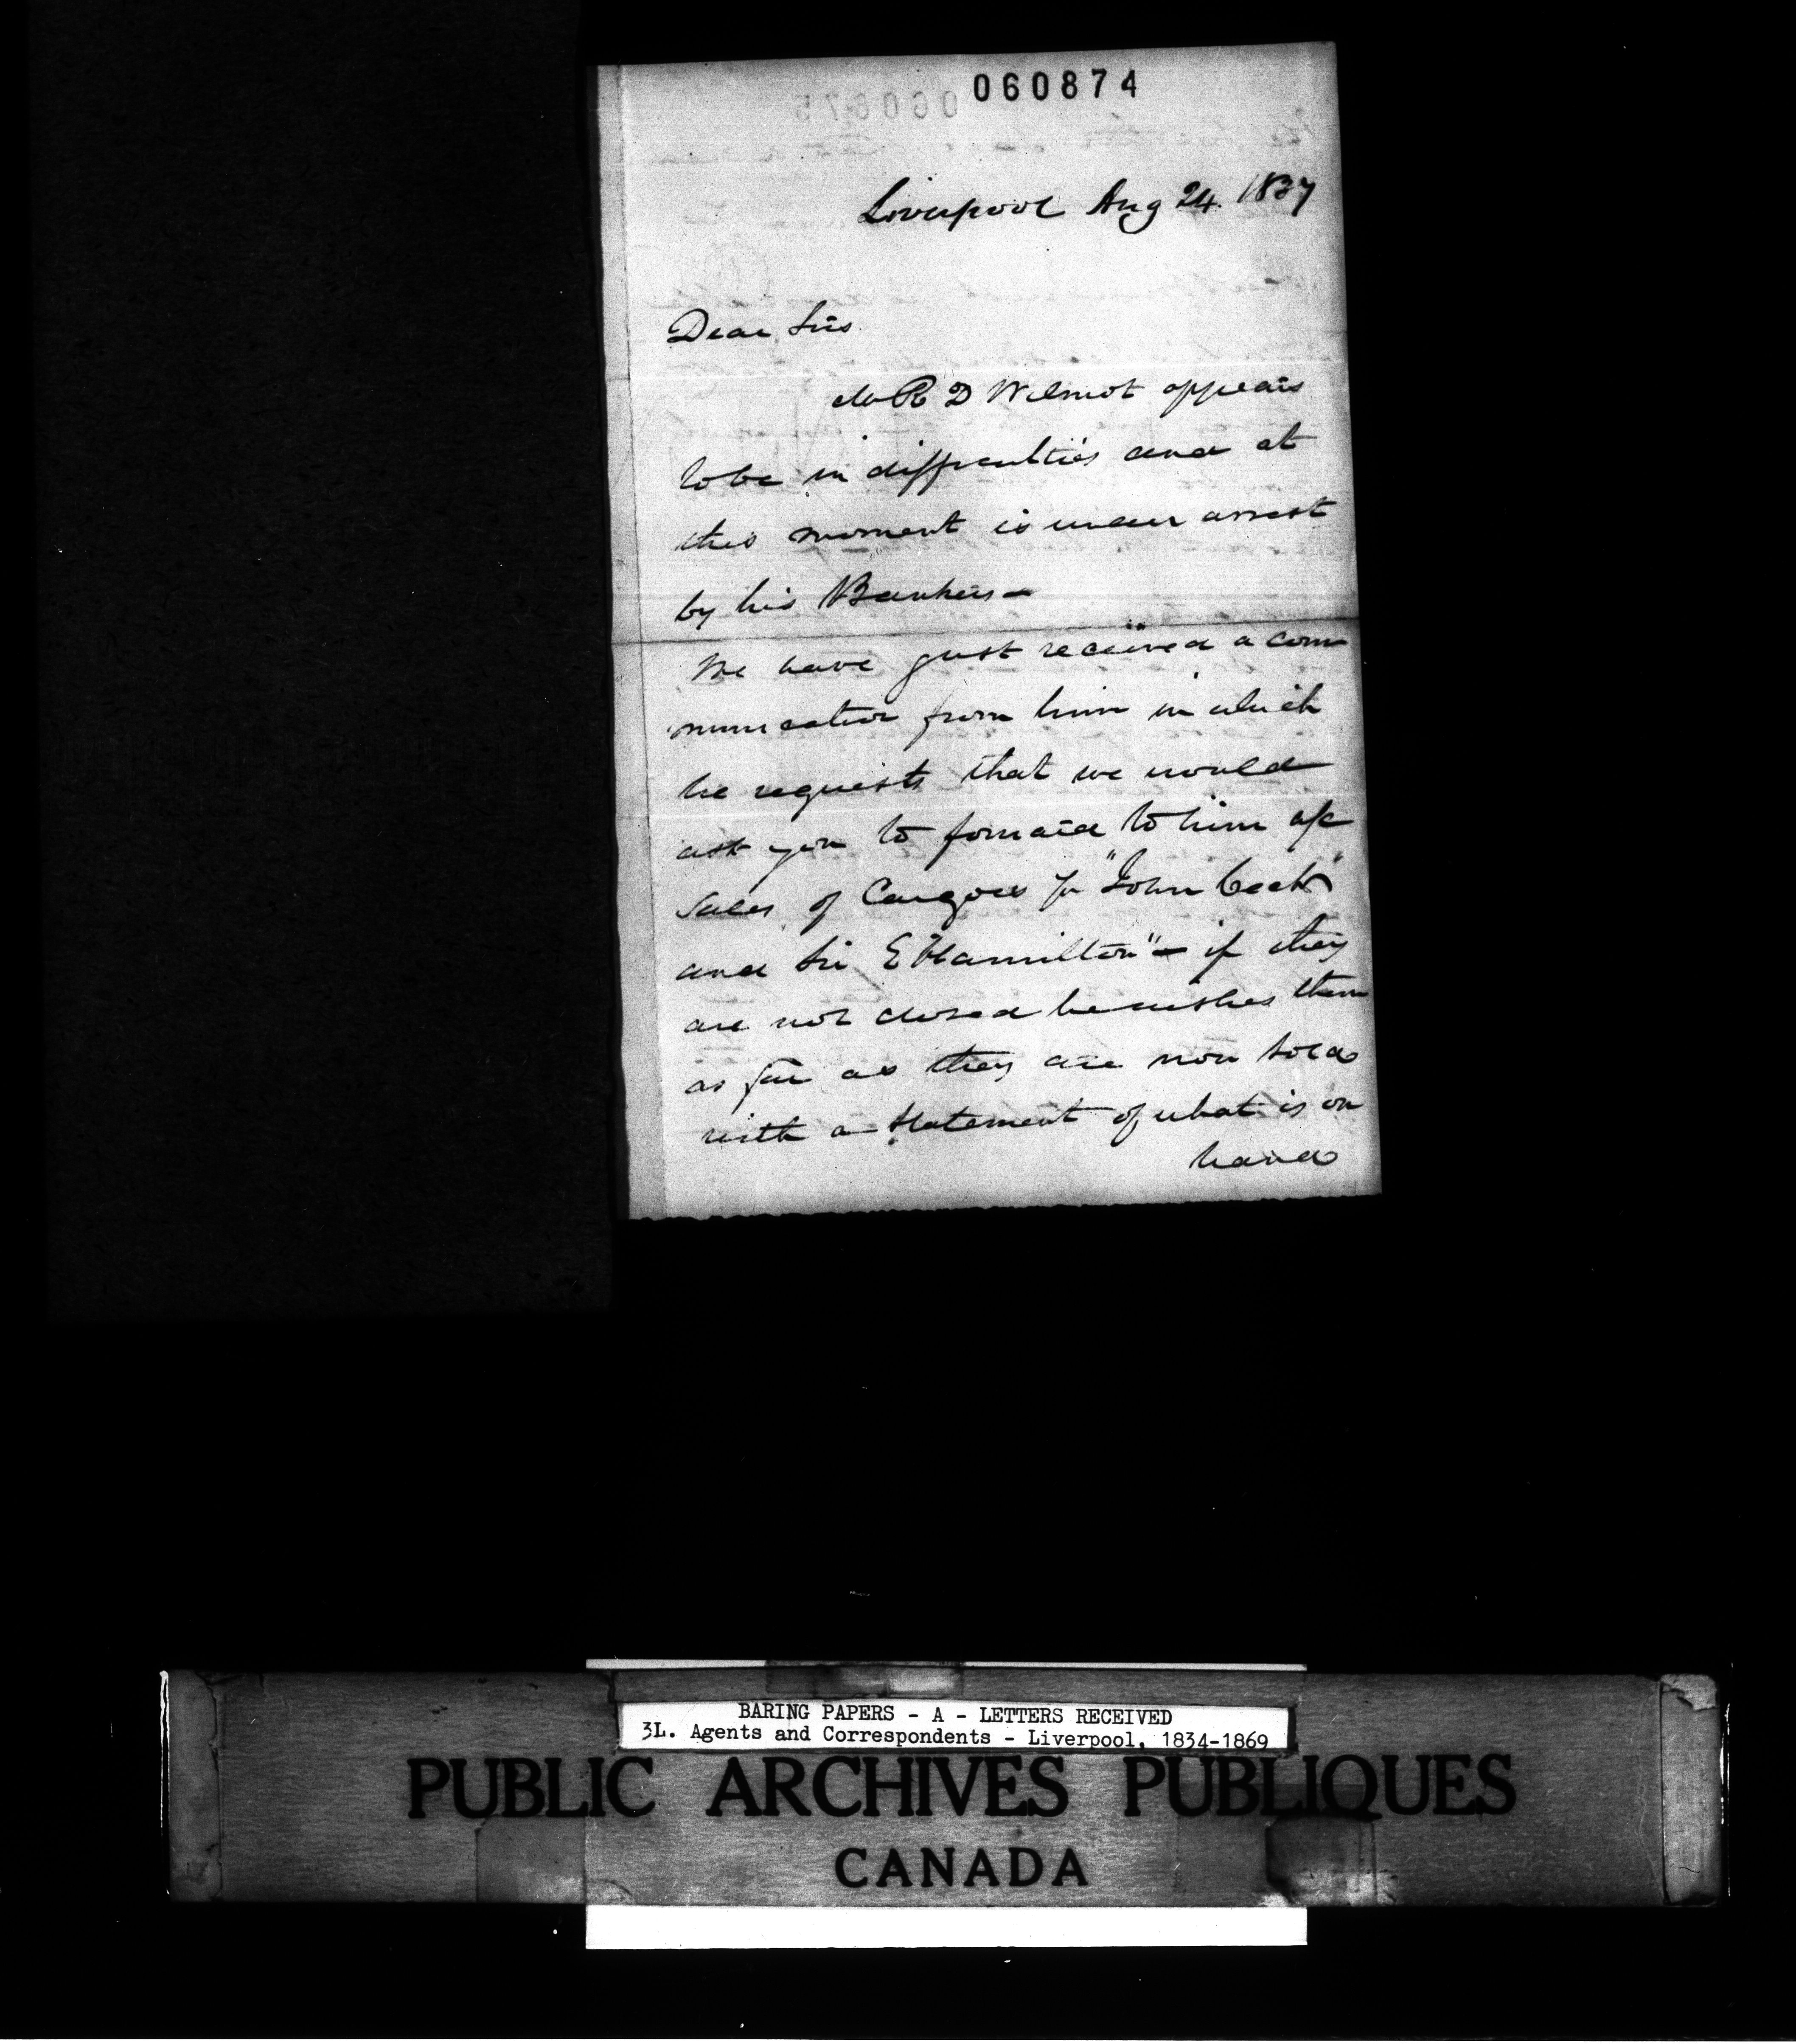 060874
Liverpool Aug 24. 1837
Dear Sirs
Mr R D Wilmot appears
to be in difficulties and at
this moment is under arrest
by his Bankers –
We have just received a com
munication from him in which
he requests that we would
ask you to forward to him a/c
Sales of Cargoes "John
and Sir E Hamilton" – if they
are not closed he wishes them
as far as they are now sold
with a statement of what is on
hand
BARING PAPERS - A - LETTERS RECEIVED
3L. Agents and Correspondents - Liverpool, 1834-1869
PUBLIC ARCHIVES PUBLIQUES
CANADA